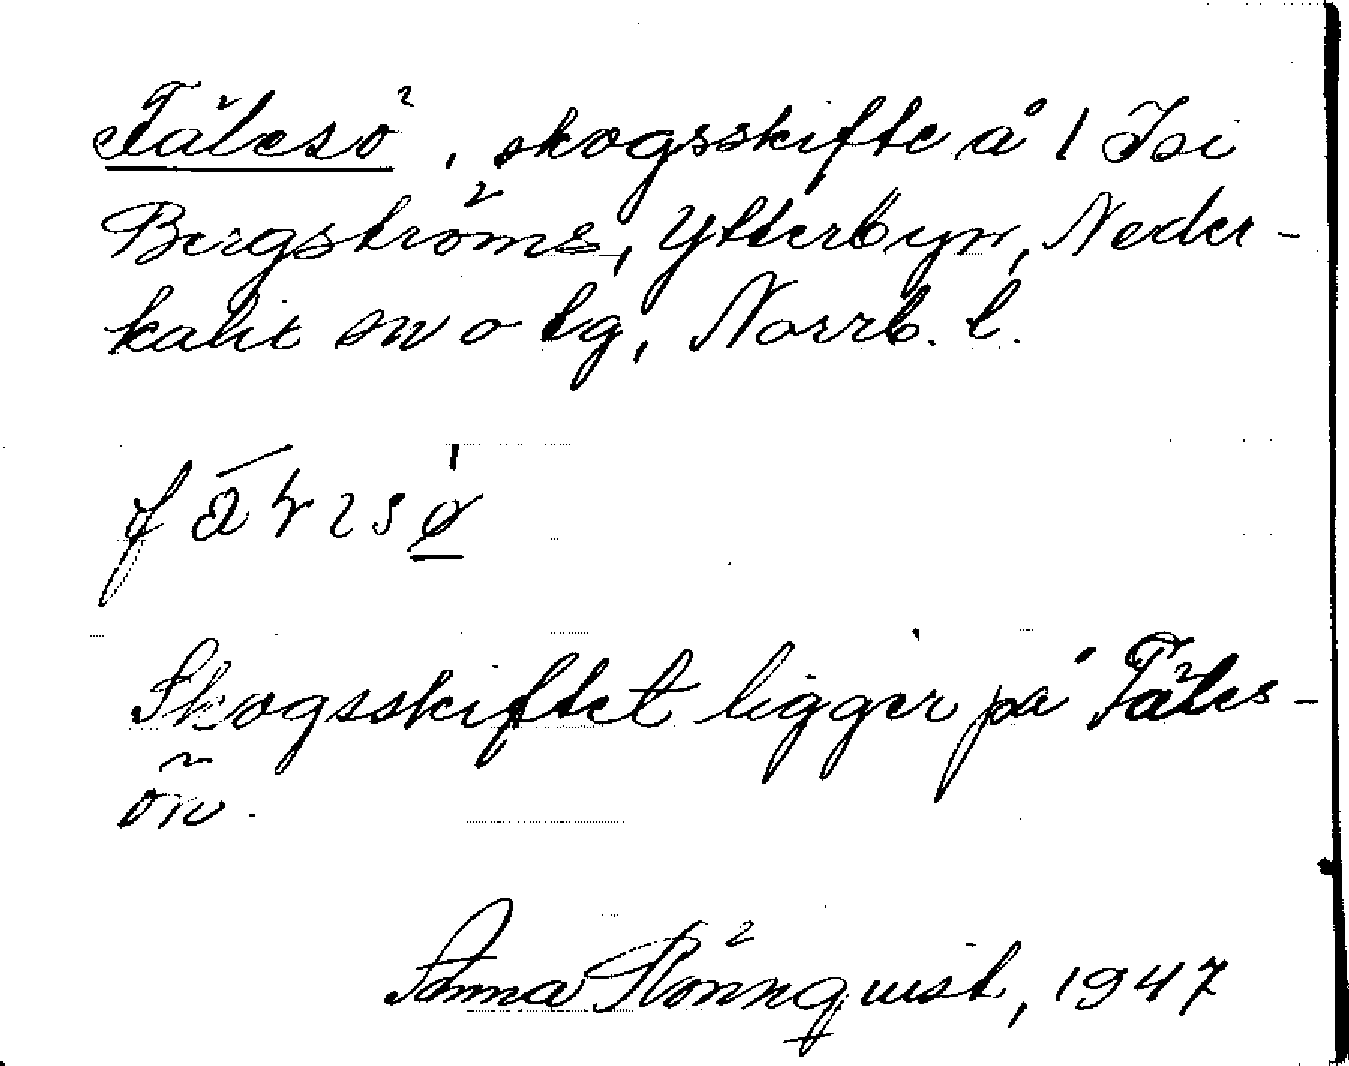 Fälesö, skogsskifte å 1 Isi
Bergströms, Ytterbyn, Neder-
kalix sn o tg, Norrb. l.
Skogsskiftet ligger på Fäles-
ön.
Anna Rönnquist, 1947